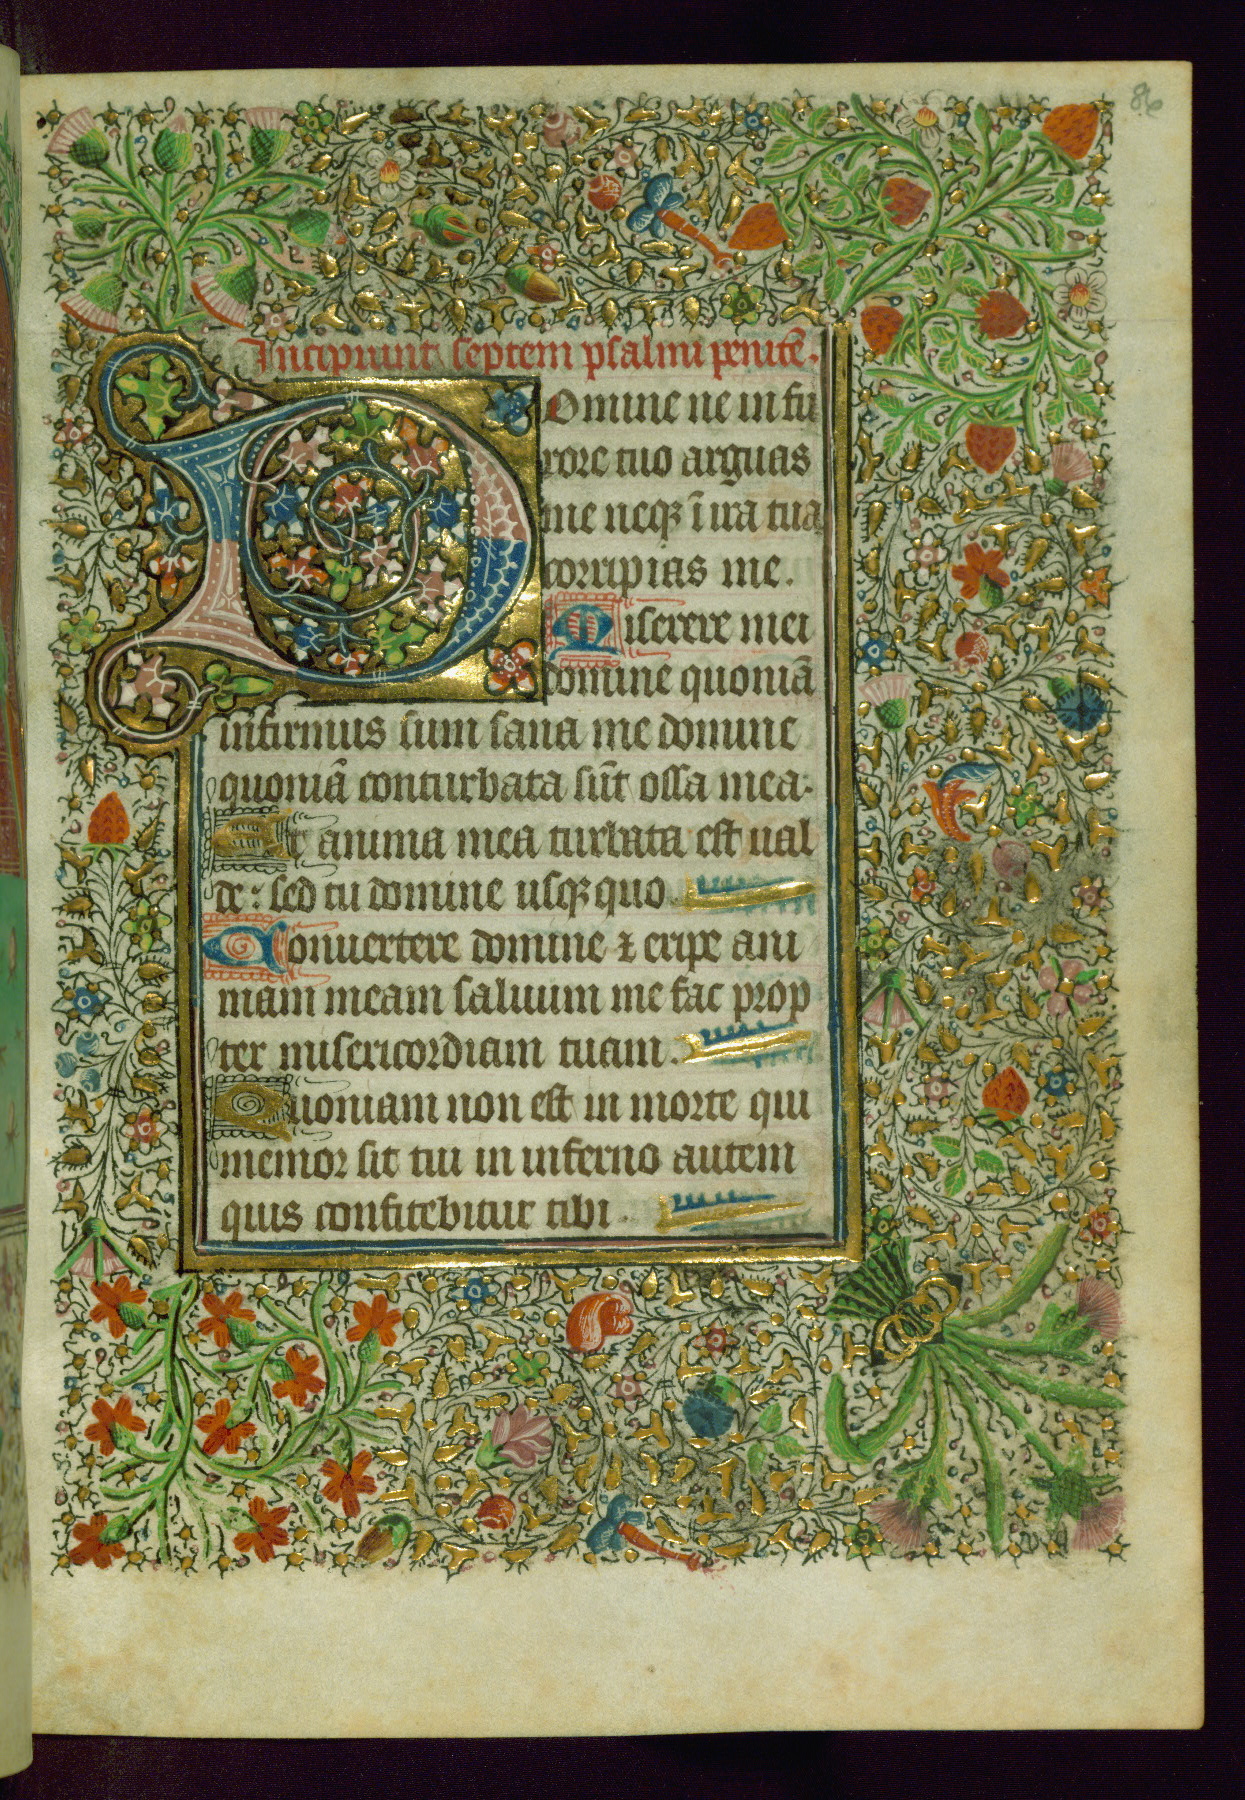 86
Incipiunt septem psalmi penitē.
Domine ne in fu
rore tuo arguas
me neqꝫ ī ira tua
corripias me.
Miserere mei
domine quoniā
infirmus sum sana me domine
quoniā conturbata sūt ossa mea.
Et anima mea turbata est ual
de: sed tu domine usqꝫ quo
Conuertere domine ⁊ eripe ani
mam meam saluum me fac prop
ter misericordiam tuam.
Quoniam non est in morte qui
memor sit tui in inferno autem
quis confitebitur tibi.